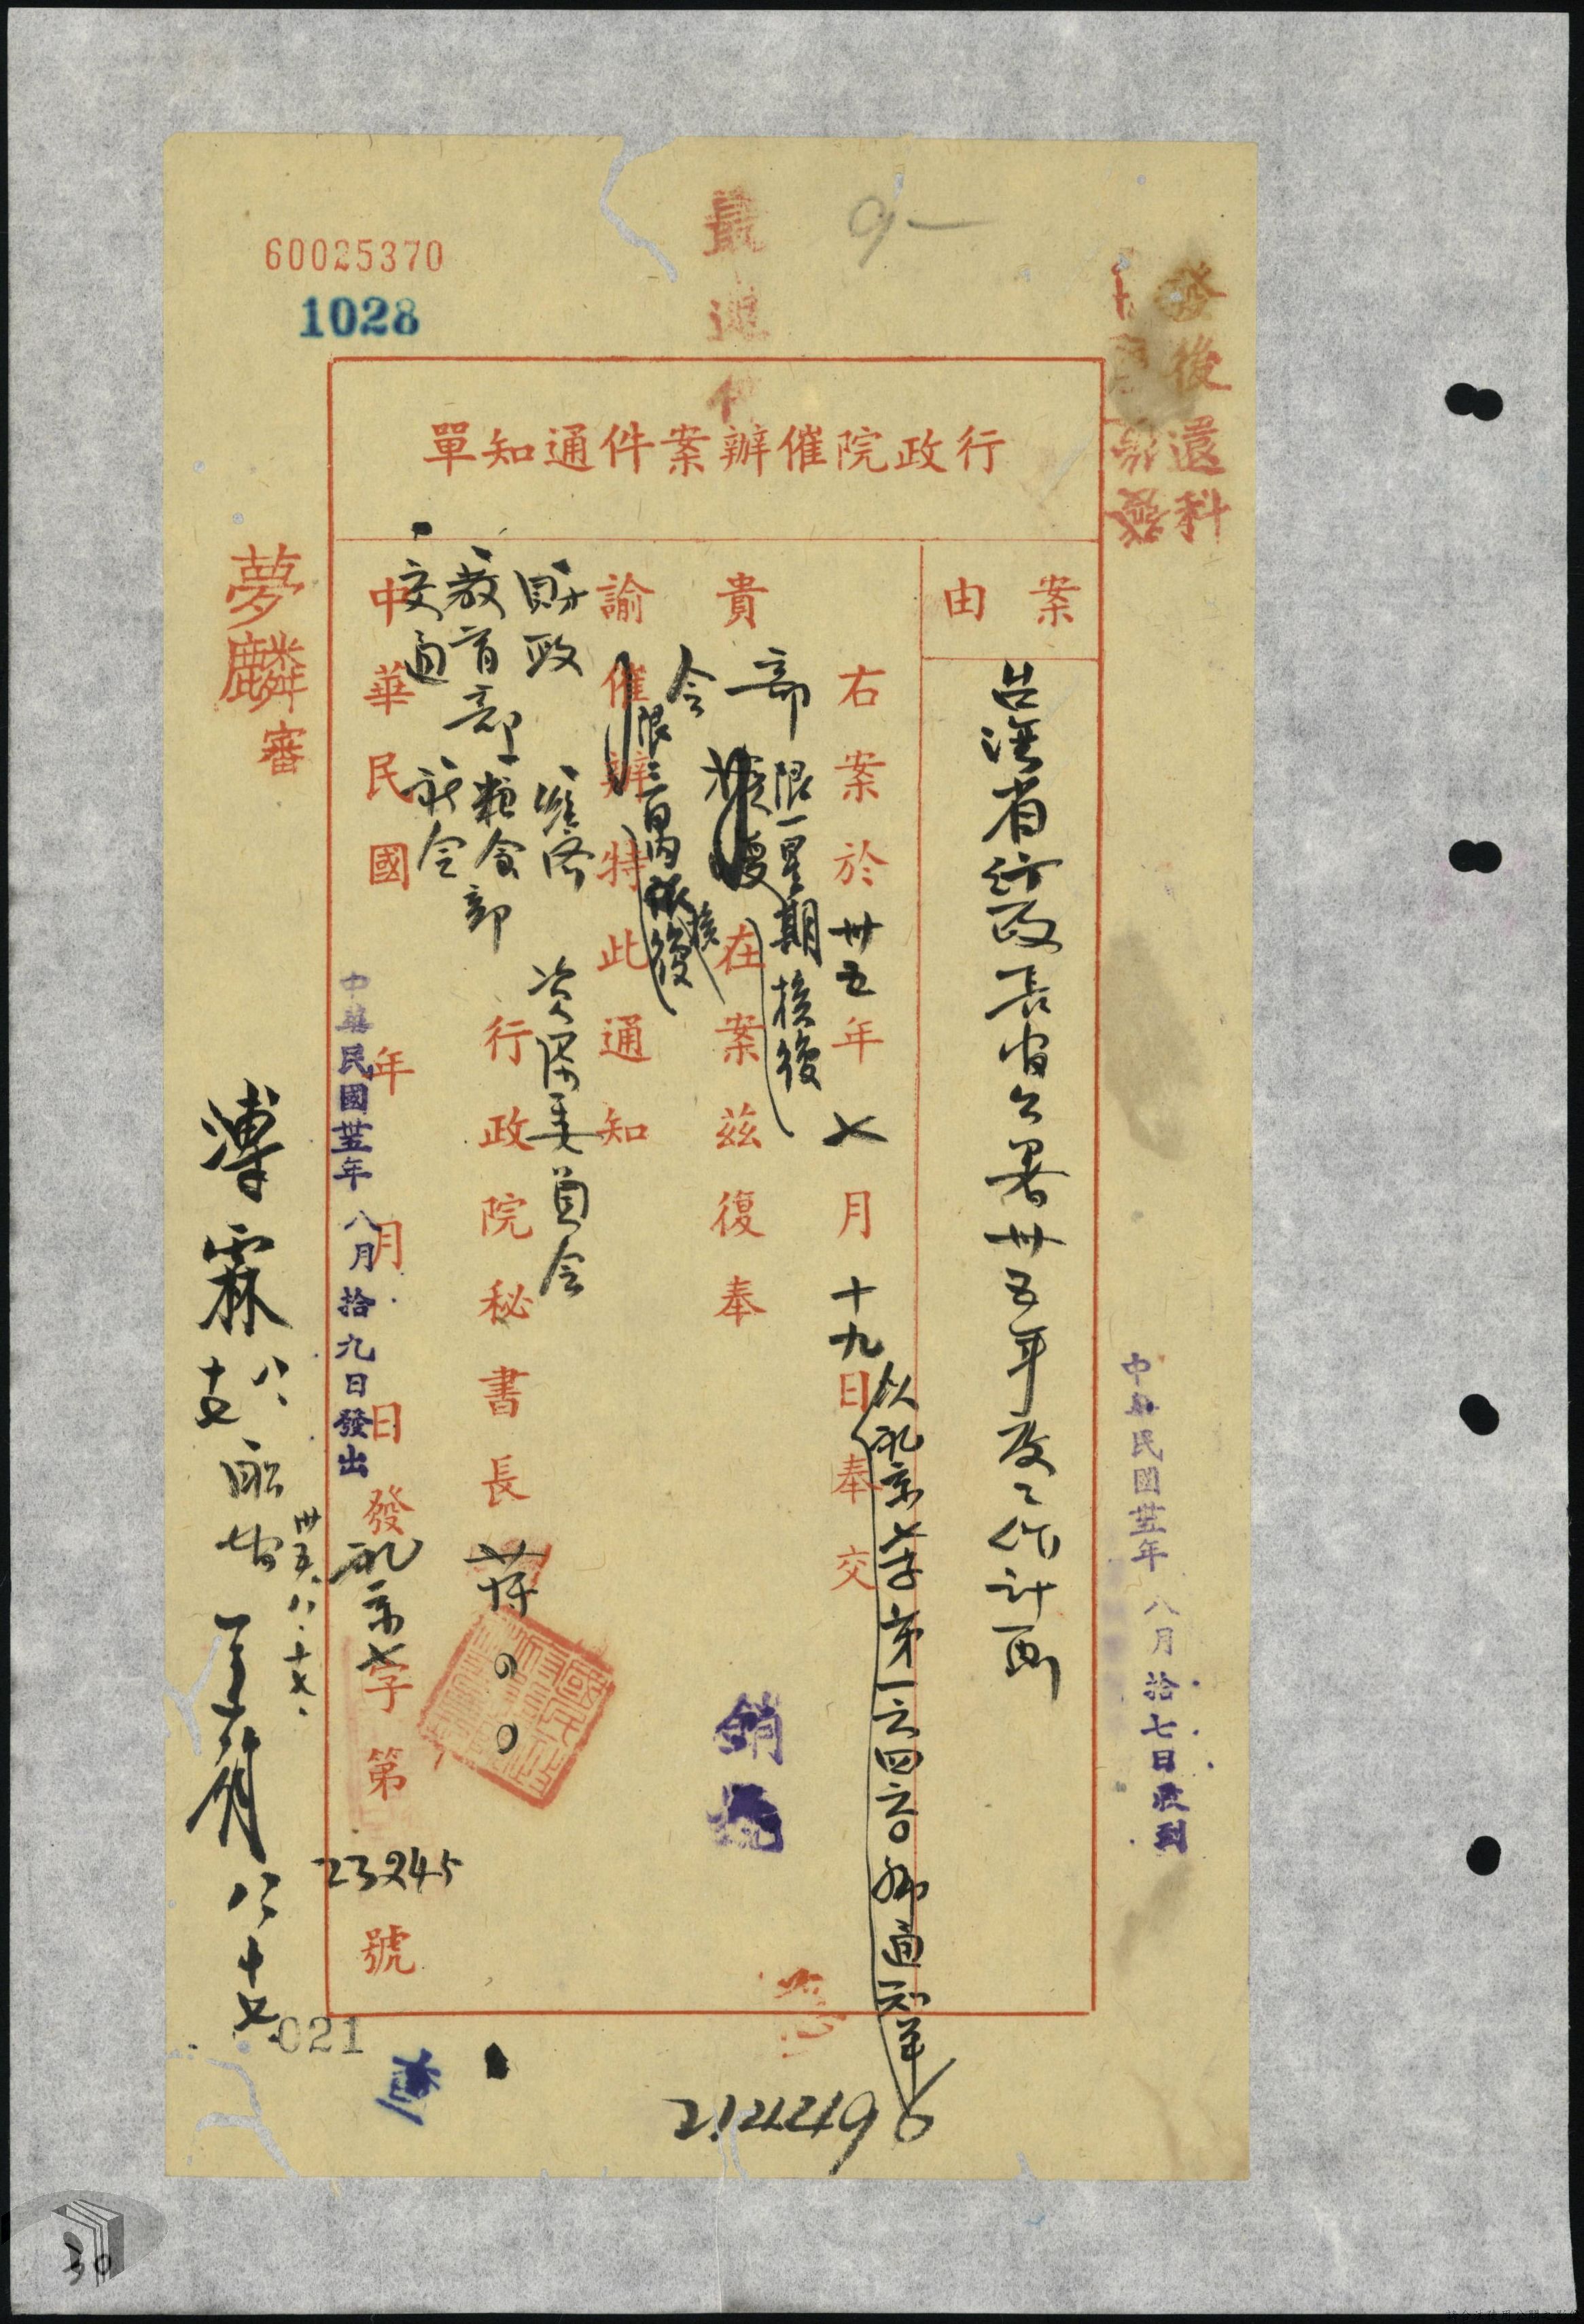 60025370
1028
最速件
發後還科
行政院催辦案件通知單
案由
台灣省行政長官公署卅五年度工作計畫
右案於卅五年七月十九日奉交
以礼京七字第一六四六〇號通知單
貴部會
限一星期核復
在案茲復奉
諭催辦特此通知
限三日內核復
財政 經濟 資源委員會
教育部 糧食部
交通 社會
行政院秘書長蔣〇〇
中華民國 年 月 日發
礼京七字第23245號
中華民國卅五年八月拾九日發出
中華民國卅五年八月拾七日收到
夢麟審
溥霖
八、十七
卅五、八、十七、
八、十七
銷號
021
30